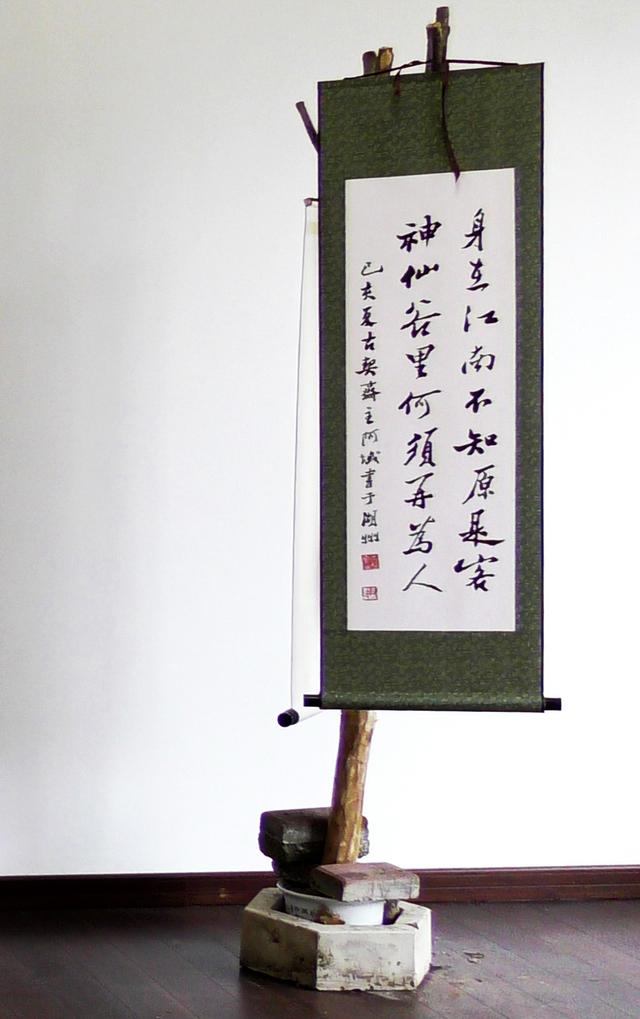 身在江南不知原是客
神仙谷里何须再为人
己亥夏古契斋主阿城书于湖州